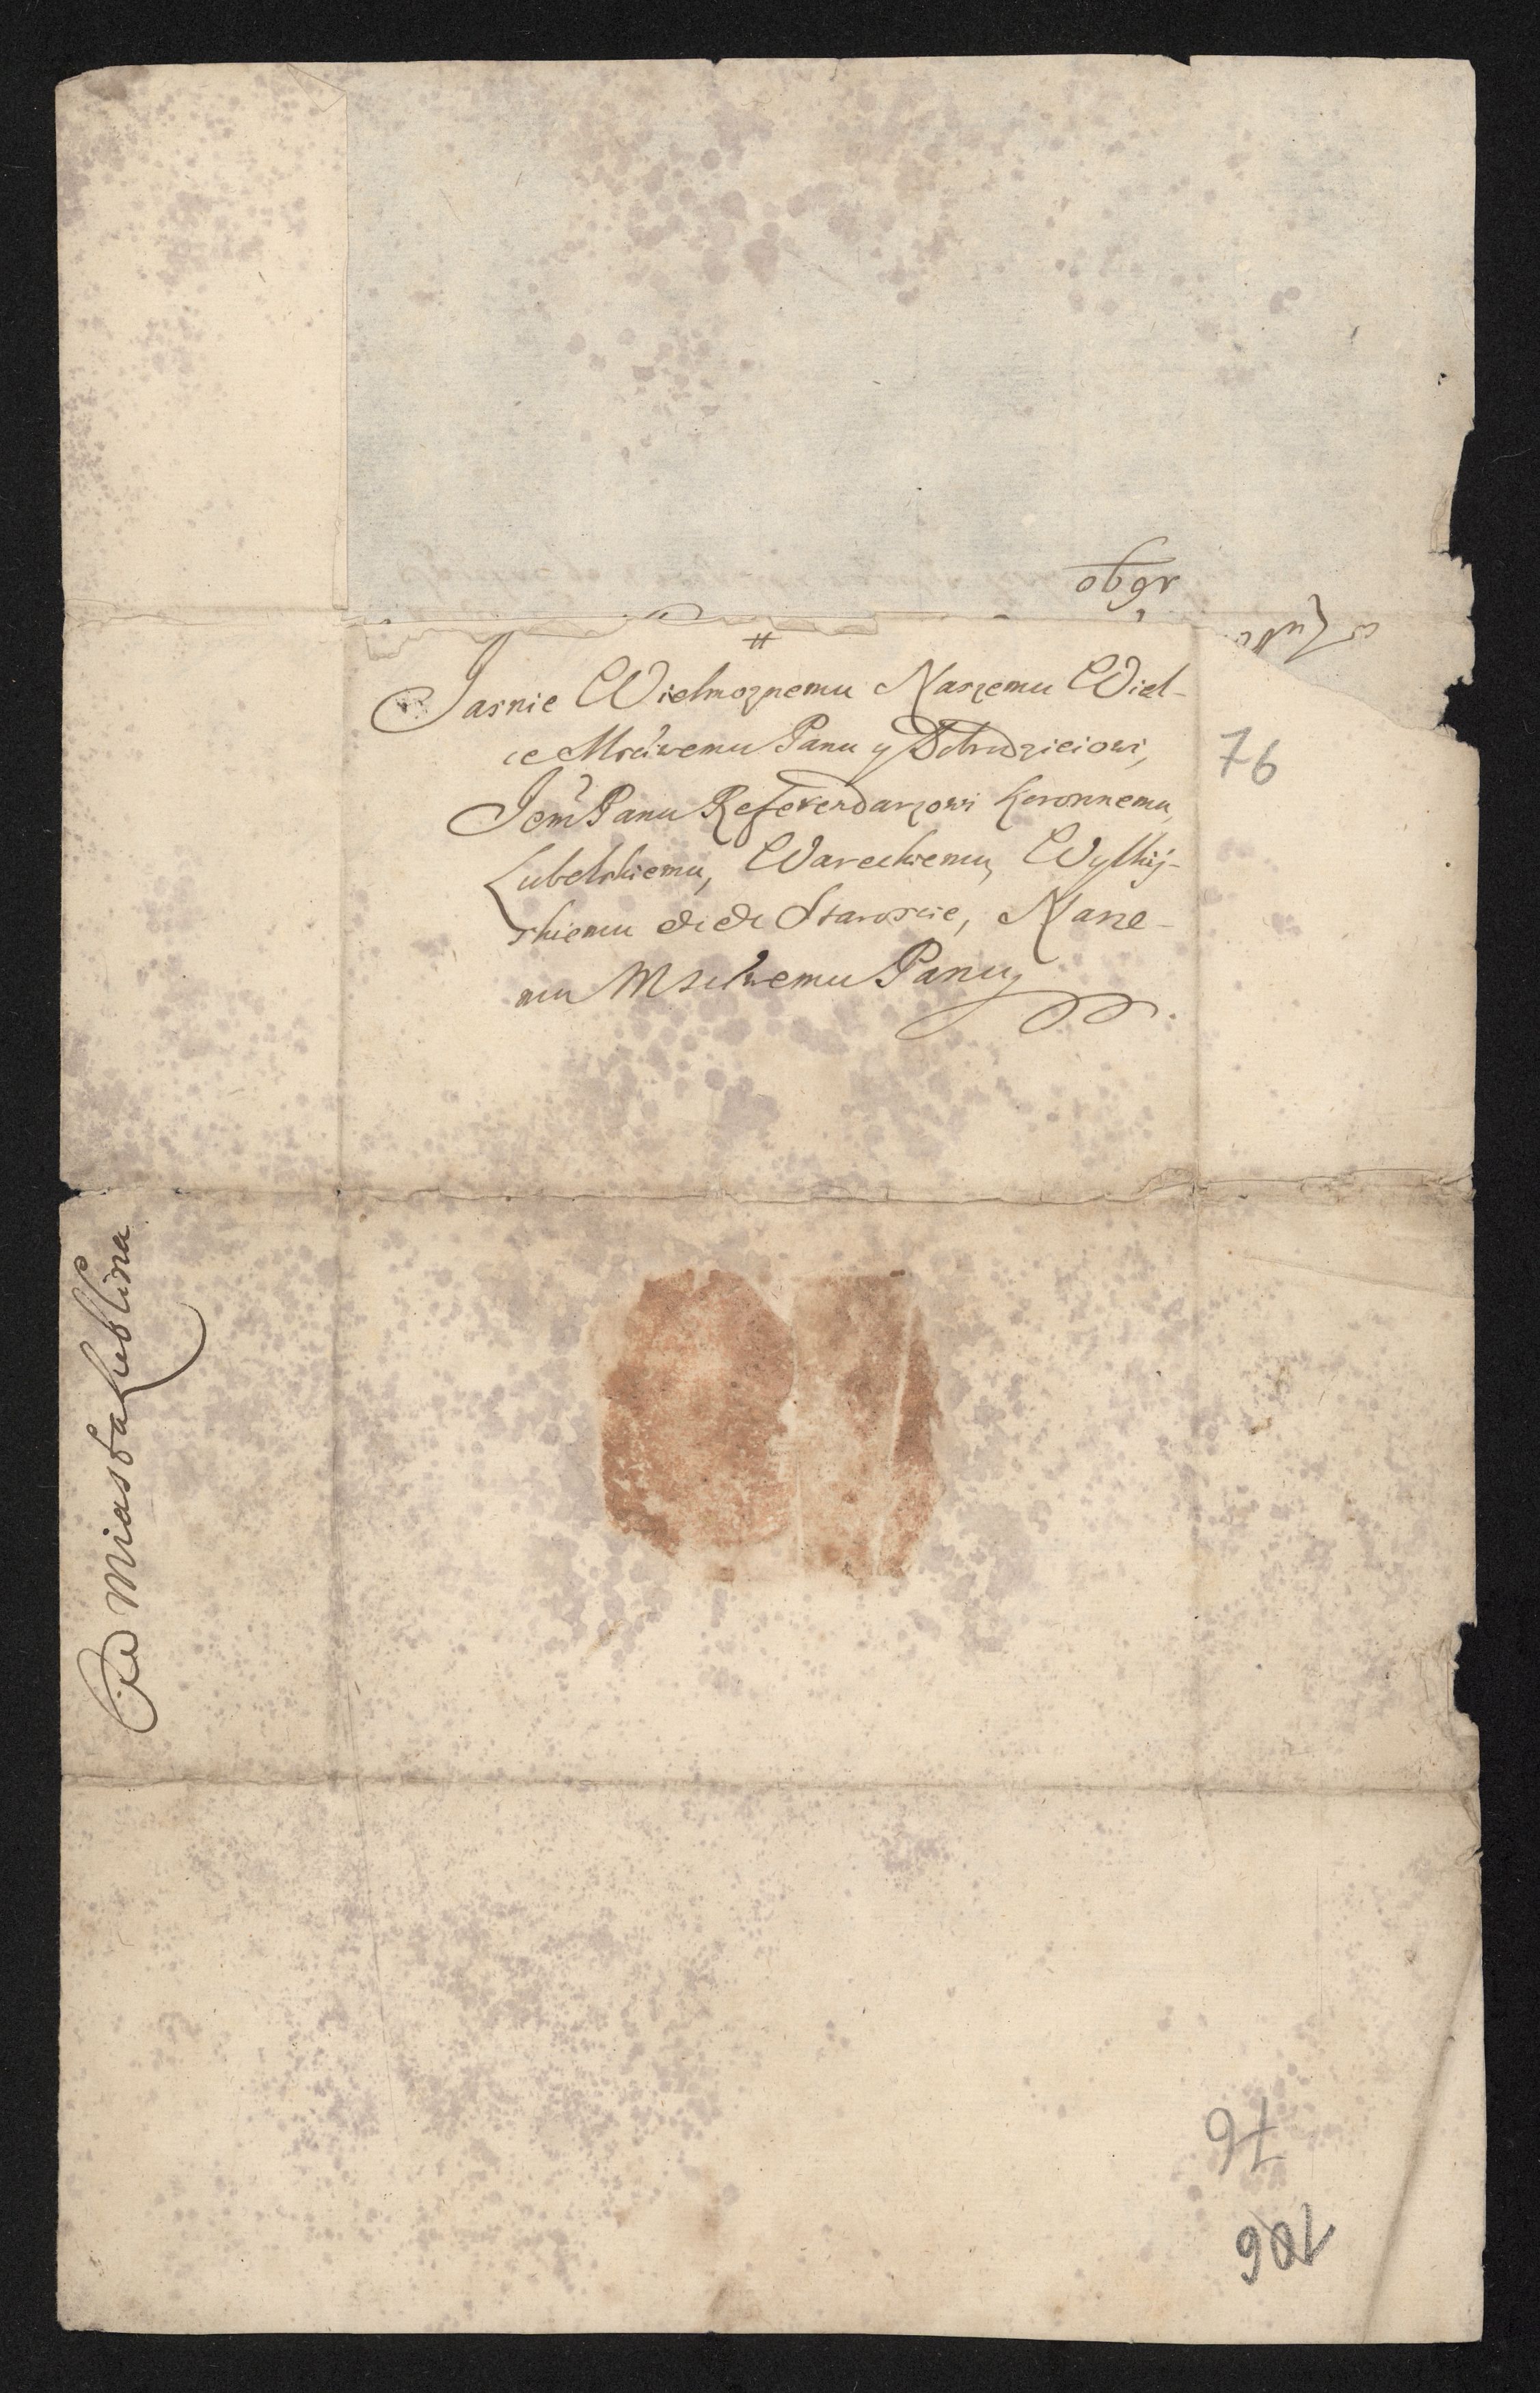 obgr
#
Jasnie Wielmoznemu Naszemu Wiel-
ce Msciwemu Panu y Dobrodzieiowi,
Jem Panu Referendarzowi Koronnemu,
Lubelskiemu, Wareckiemu,
skiemu &c &c Staroscie, Nasze-
mu Msciwemu Panu
76
Od Miasta Lublina
76
106